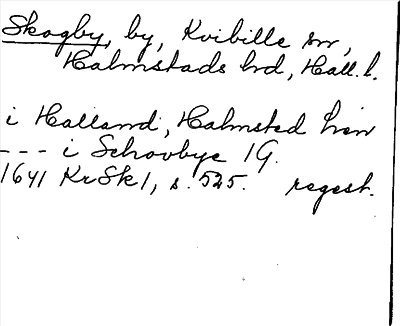 Skogby, by, Kvibille sn,
Halmstads hd, Hall. l.
i Halland, Halmsted hren
--- i Schovbye 1G.
1641 KrSk1, s. 525. regest.